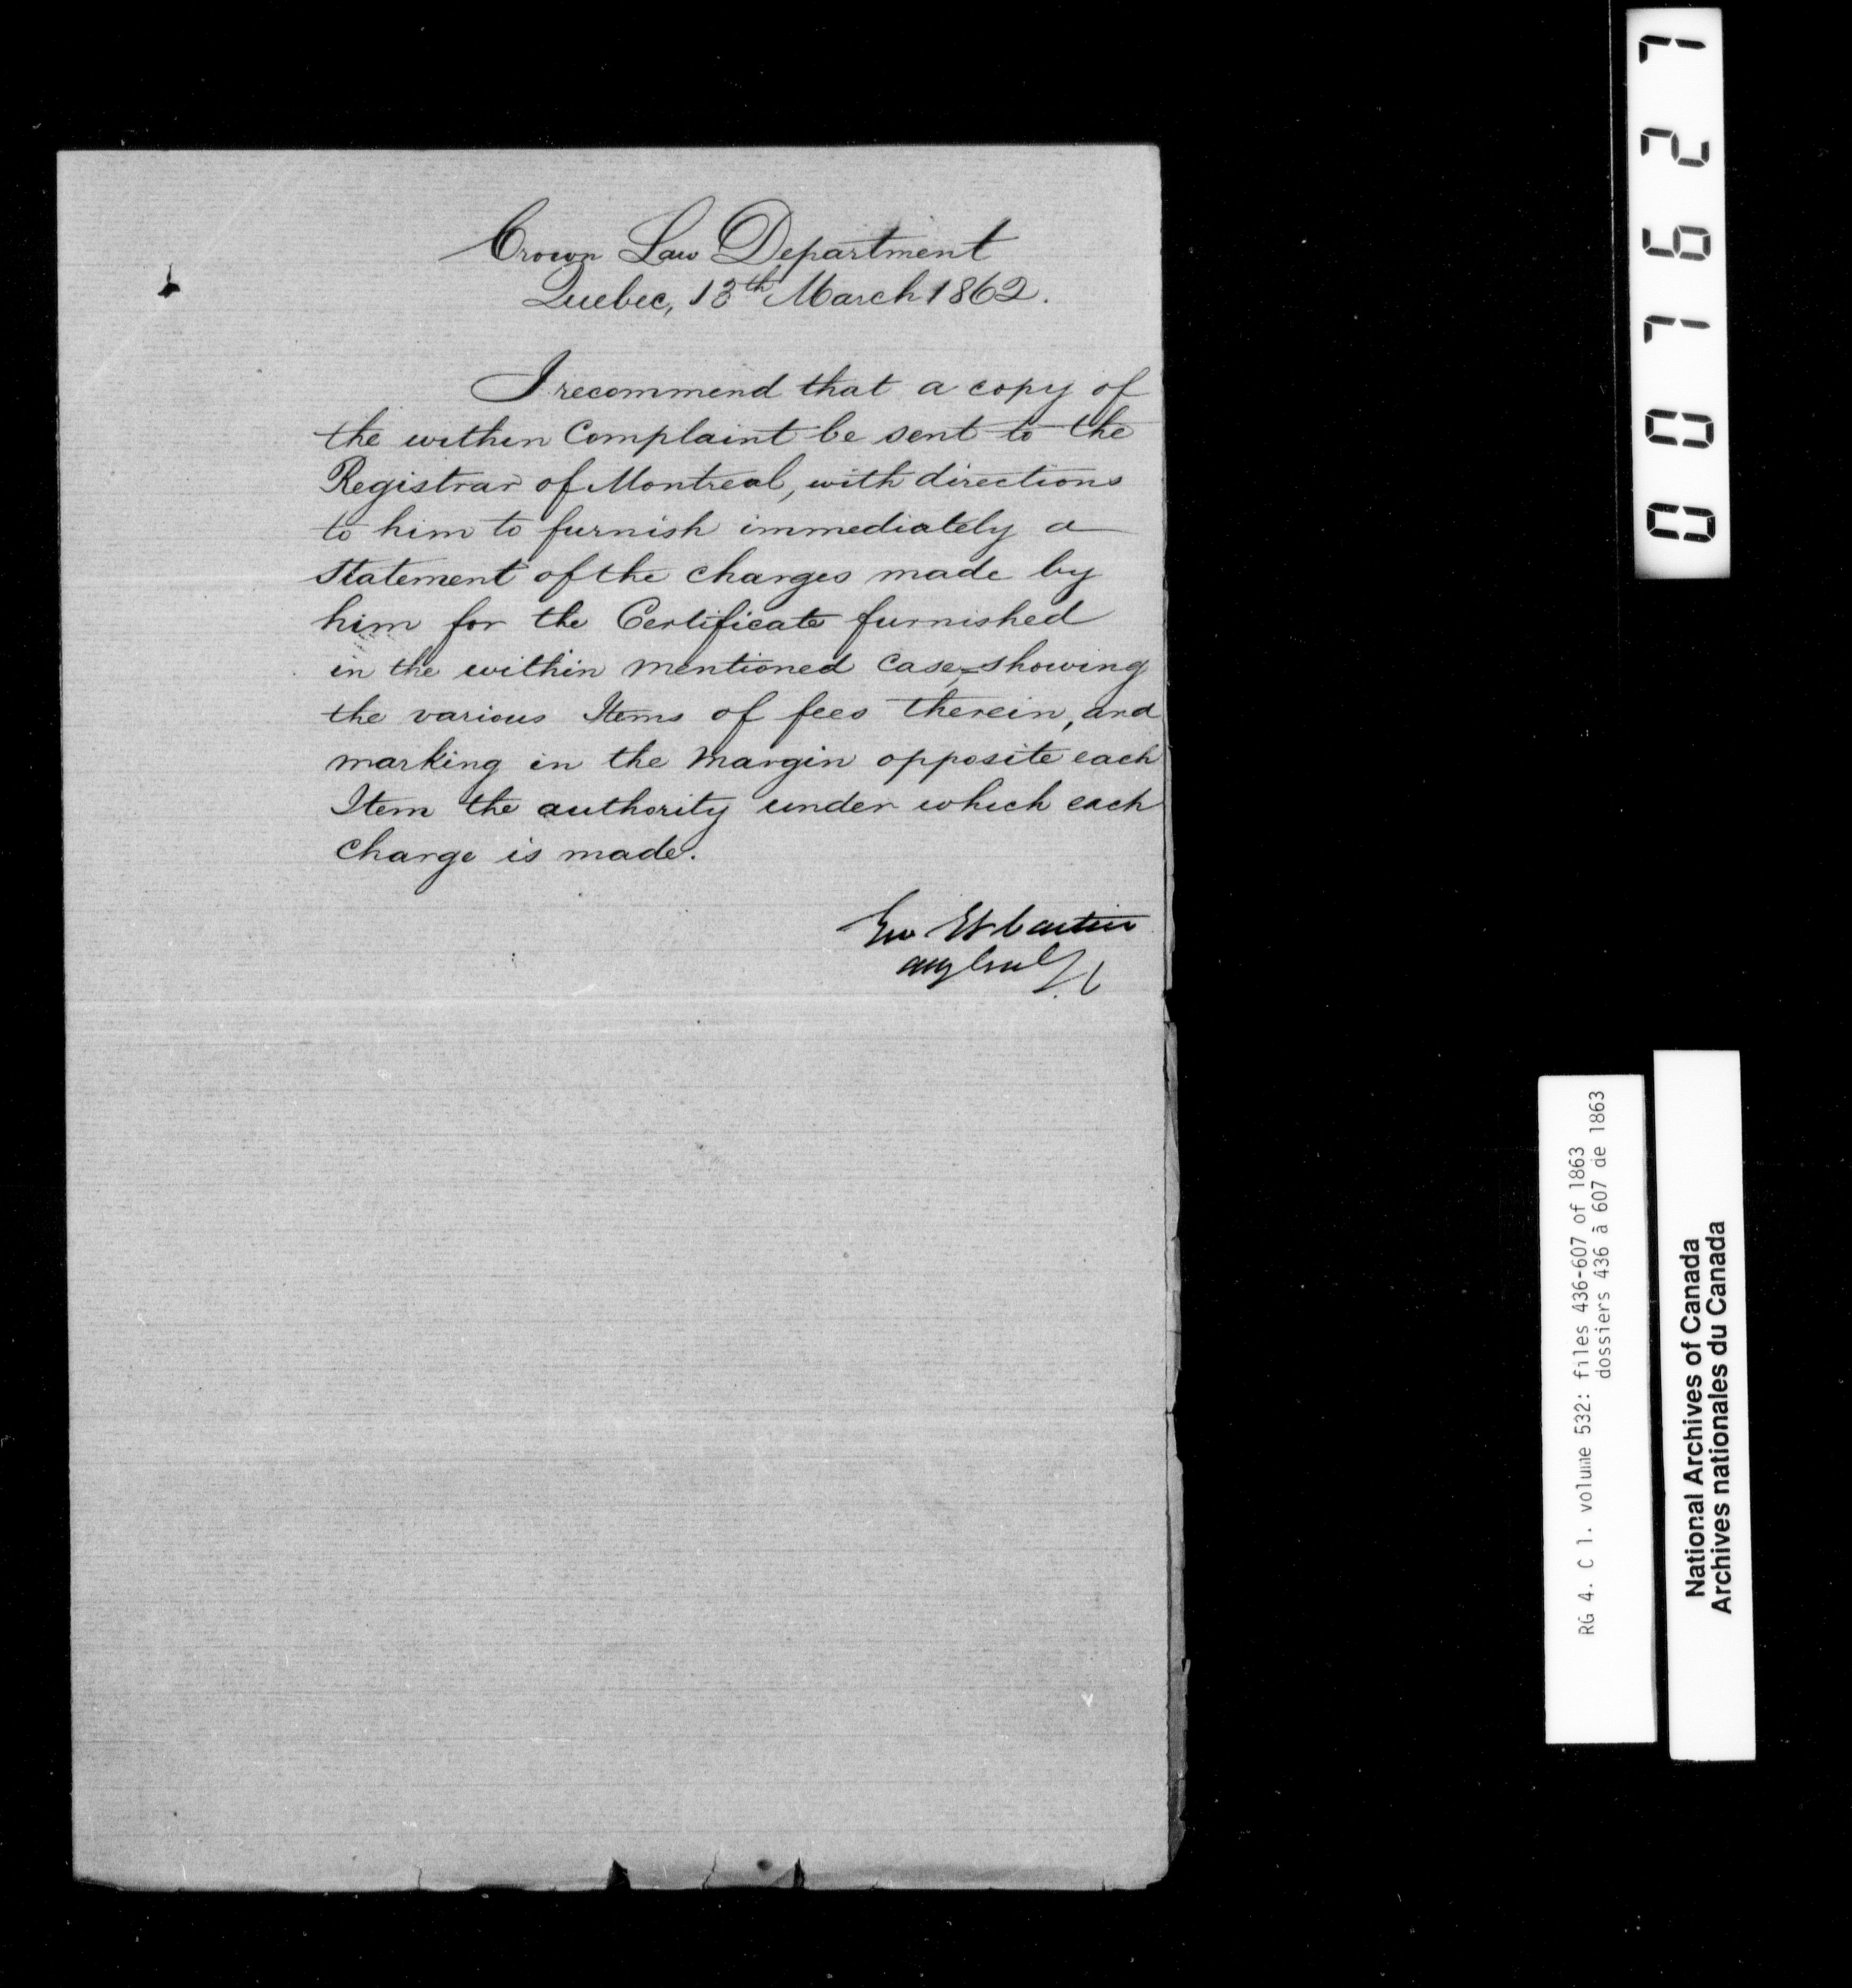 Crown Law Department
Quebec, 13th March 1862.
I recommend that a copy of
the within Complaint be sent to the
Registrar of Montreal, with directions
to him to furnish immediately a
Statement of the charges made by
him for the Certificate furnished
in the within mentioned case, showing
the various Items of fees therein, and
marking in the Margin opposite each
Item the authority under which each
charge is made.
Geo Et Cartier
007627
RG 4. C 1. volume 532: files 436-607 of 1863
dossiers 436 à 607 de 1863
National Archives of Canada
Archives nationales du Canada